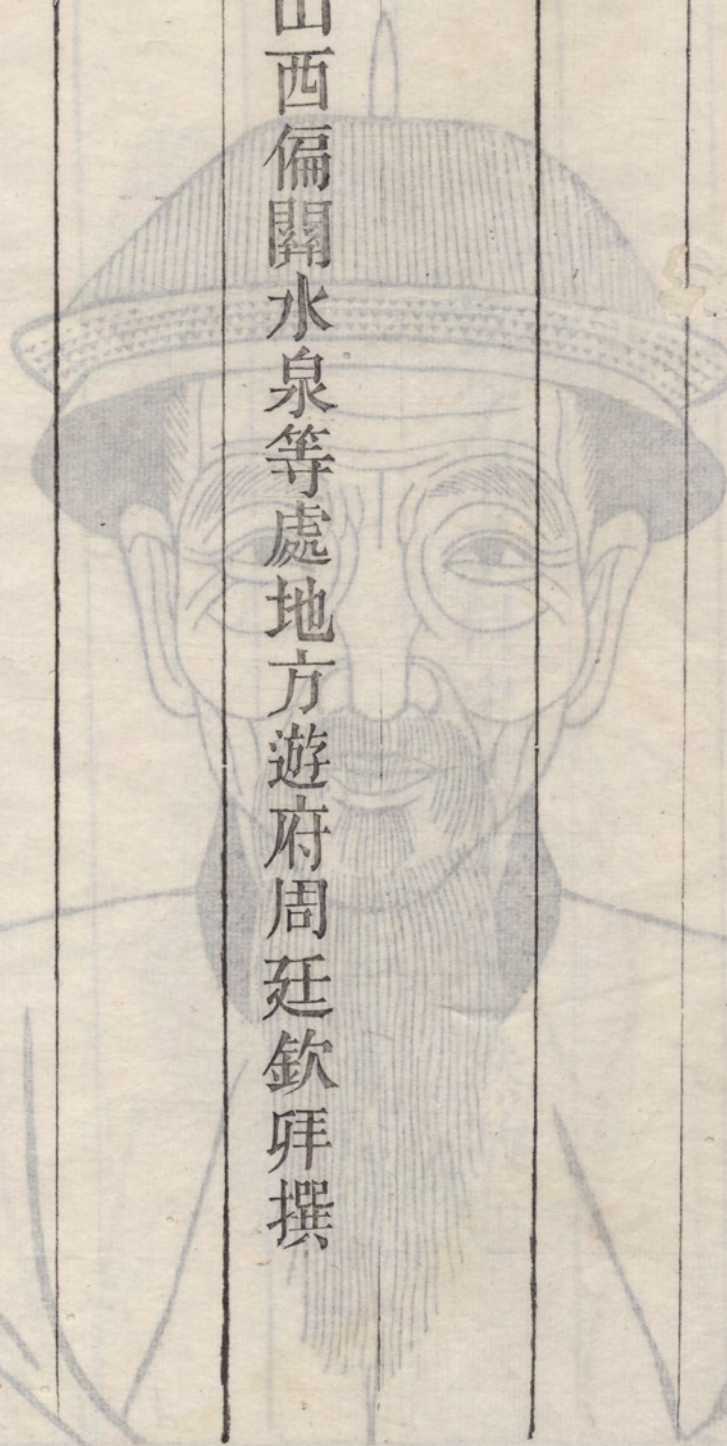 山西偏關水泉等處地方遊府周廷欽拜撰